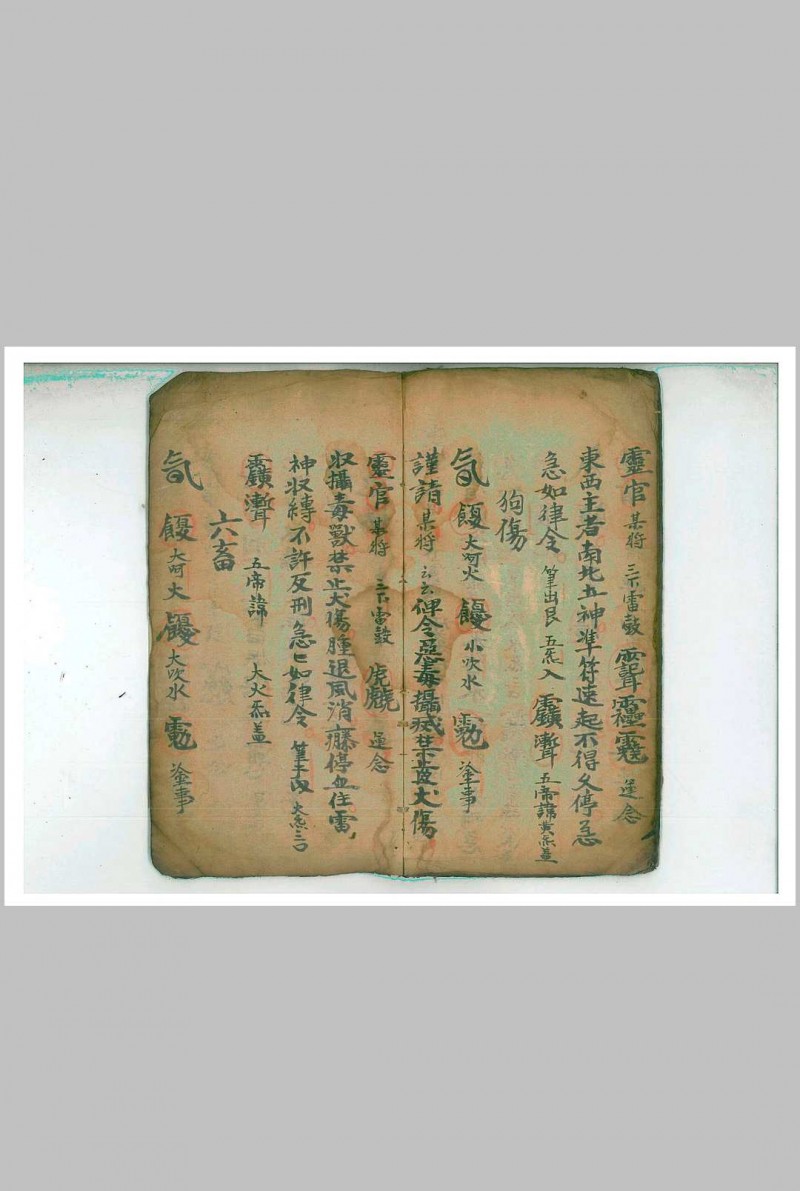 靈官 某将 三下雷鼓 運念
東西主者南北五神準符速起不得久停急
急如律令 筆出艮 五炁入 五帝諱 黄炁蓋
狗傷
大呵火 小吹水 塗事
謹請 某将 云云 俾令惡毒攝威禁虔犬傷
靈官 某将 三下雷鼓 運念
収攝毒獸禁止犬傷腫退風消 停血住雷
神収縛不許反刑急匕如律令 大炁三口
五帝諱 大火炁蓋
六畜
大呵火 大吹水 塗事